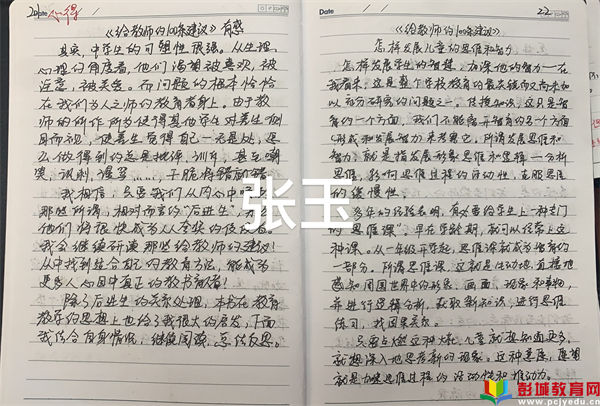 22 心得
Date
《给教师的100条建议》有感
其实,中学生的可塑性很强。从生理、
心理的角度看,他们渴望被喜欢,被
注意,被关爱。而问题的根本恰恰
在我们为人之师的教育者身上。由于教
师的所作所为使得其他学生对差生侧
目而视,使差生觉得自己一无是处,怎
么做得到的总是批评、训斥,甚至嘲
笑、讽刺、
我相信,只要我们从内心中
那些所谓,相对而言的"后进生",
他们将很快成为人全新的
我会继续研读那些给教师的建议!
从中找到结合自己的教育方法,能成为
更多人心目中真正的教书
除了后进生的关系处理,本书在教育
教学的思想上也给了我很大的启发,下面
我结合自身情况,继续阅读,总结反思。
张玉
Date
22
《给教师的100条建议》
怎样发展儿童的思维和智力
怎样发展学生的智慧,加深他的智力—在
我看来,这是整个学校教育的最关键而又尚未加
以充分研究的问题之一。传授知识,这只是智育
的一个方面,我们不能离开智育的另一个方面
(形成和发展智力)来考察它,所谓发展思维和
智力,就是指发展形象思维和逻辑—分析
思维,影响思维过程的活动性,克服思维
的缓慢性。
多年的经验表明,有必要给学生上一种专门
的"思维课"。早在学龄期,就可以经常上这
种课。从一年级开学起,思维课就成为智育的
一部分。所谓思维课,这就是生动地、直接地
感知周围世界中的形象、画面、现象和事物,
并进行逻辑分析,获取新知识,进行思维
练习,找因果关系。
只要点燃这种火花,儿童就想知道更多,
就想深入地思考新的现象。这种意愿、愿望
就是加速思维过程的活动性和推动力。
彭城教育网
www.pcjyedu.cn